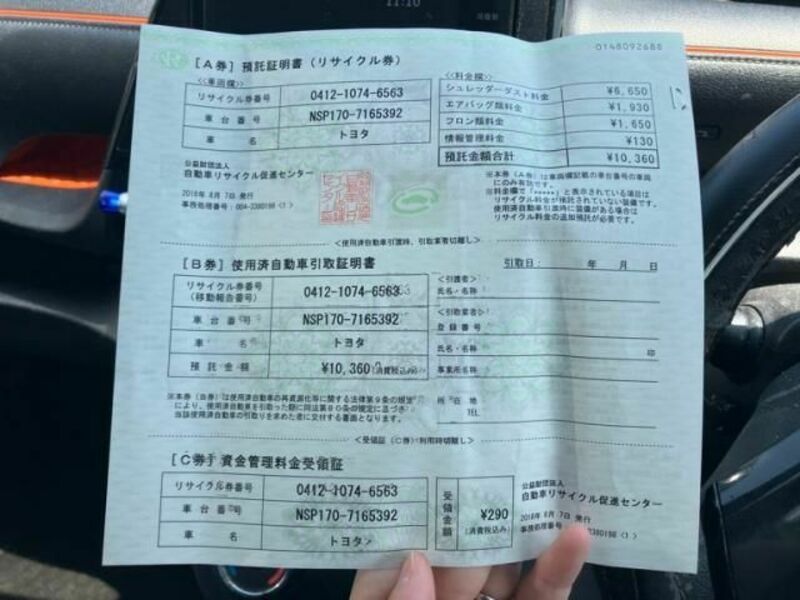 11:10
0148092688
[A券] 預託証明書(リサイクル券)
<<車両欄>>
リサイクル券番号 0412-1074-6563
車台番号 NSP170-7165392
車名 トヨタ
<<料金欄>>
シュレッダーダスト料金 ¥6,650
エアバッグ類料金 ¥1,930
フロン類料金 ¥1,650
情報管理料金 ¥130
預託金額合計 ¥10,360
公益財団法人
自動車リサイクル促進センター
2018年 8月 7日 発行
※本券(A券)は車両欄記載の車台番号の車両
にのみ有効です。
※料金欄で「*****」と表示されている場合は
リサイクル料金が預託されていない装備です。
使用済自動車引渡時に装備がある場合は
リサイクル料金の追加預託が必要です。
<使用済自動車引渡時、引取業者切離し>
[B券] 使用済自動車引取証明書
引取日: 年 月 日
リサイクル券番号
(移動報告番号) 0412-1074-6563
車台番号 NSP170-7165392
車名 トヨタ
預託金額 ¥10,360(消費税込み)
<引渡者>
氏名・名称
<引取業者>
登録番号
氏名・名称 印
事業所名称
所在地
TEL
※本券(B券)は使用済自動車の再資源化等に関する法律第9条の規定
により、使用済自動車を引取った際に同法第80条の規定に基づき
当該使用済自動車の引取りを求めた者に交付する書面となります。
<受領証(C券)利用時切離し>
[C券] 資金管理料金受領証
リサイクル券番号 0412-1074-6563
車台番号 NSP170-7165392
車名 トヨタ
受領金額 ¥290
(消費税込み)
公益財団法人
自動車リサイクル促進センター
2018年 8月 7日 発行